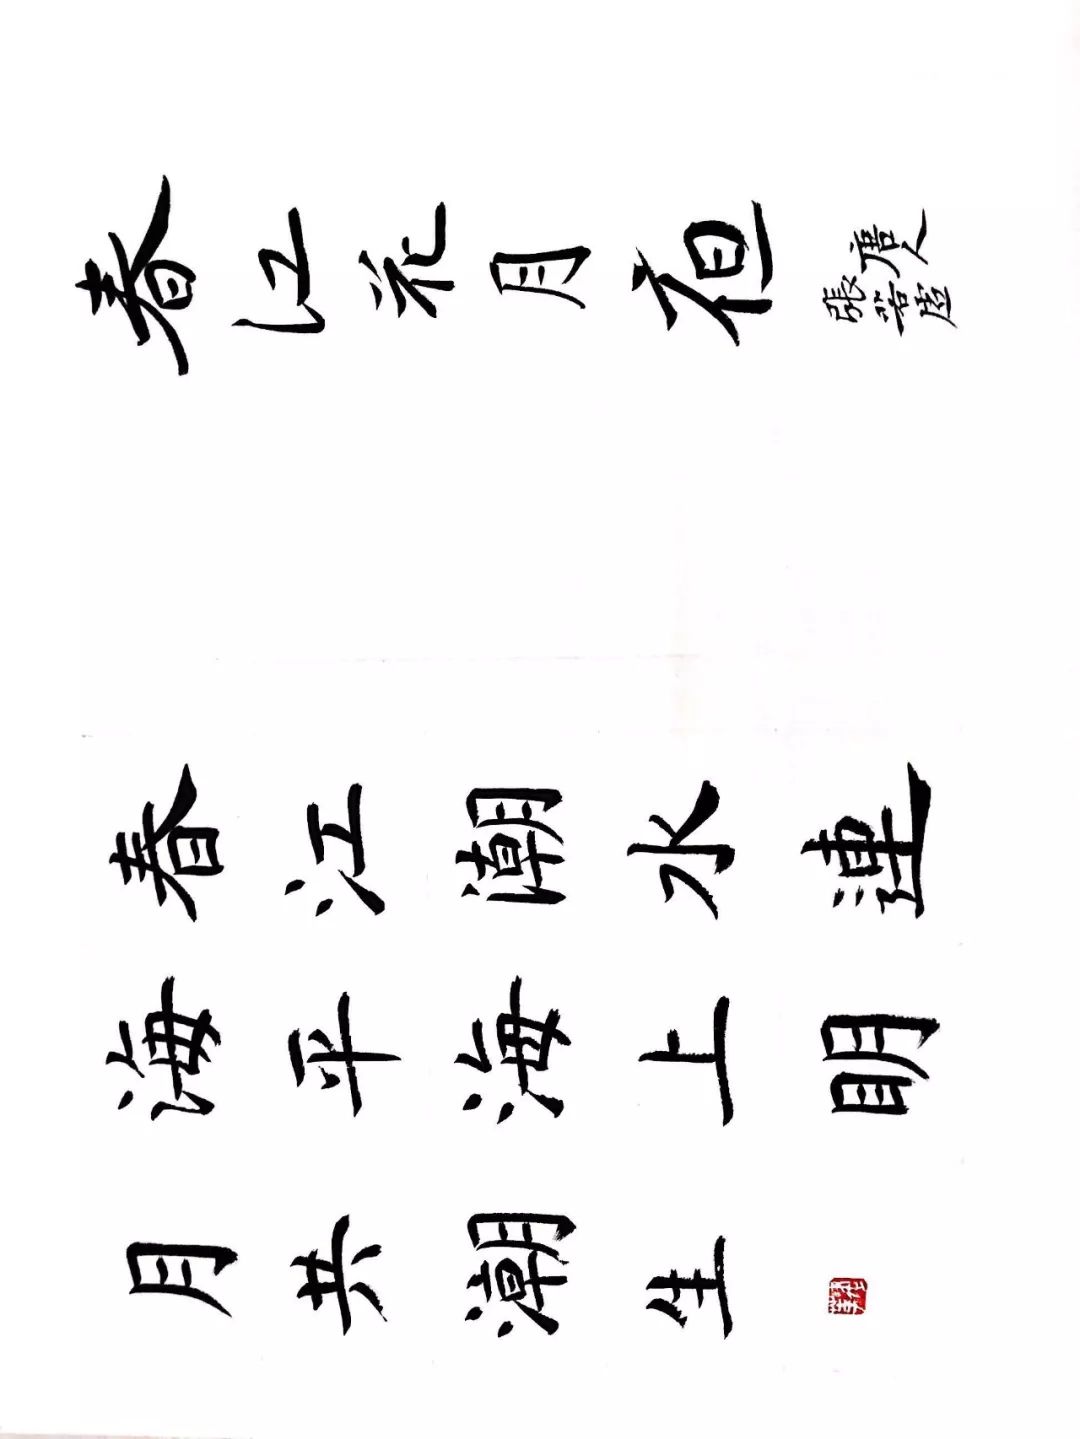 春江花月夜
唐人
張若虛
春江潮水連
海平海上明
月共潮生